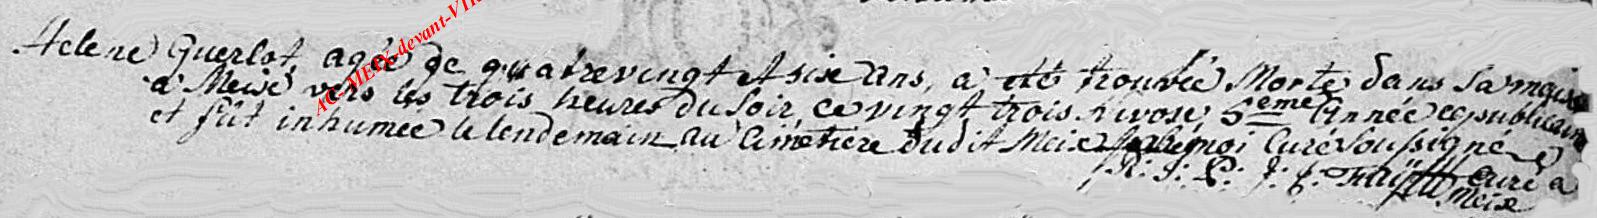 AC-MEIX-devant-VIR
helene Guerlot, agée de quatrevingt et six ans, a été trouvée Morte dans sa maison
a Meix vers les trois heures du soir, ce vingt trois nivose 5eme année republicaine
et fût inhumée le lendemain au cimetiere dudit Meix par moi Curé soussigné
R. J. P. J. C. curé a
Meix